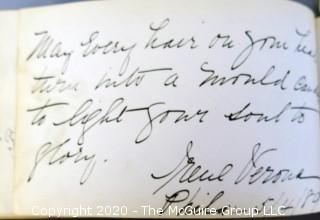 May Every hair on your hea
turn into a mould can
to light your soul to
glory.
Irene Verona
Phil
Copyright 2020 - The McGuire Group